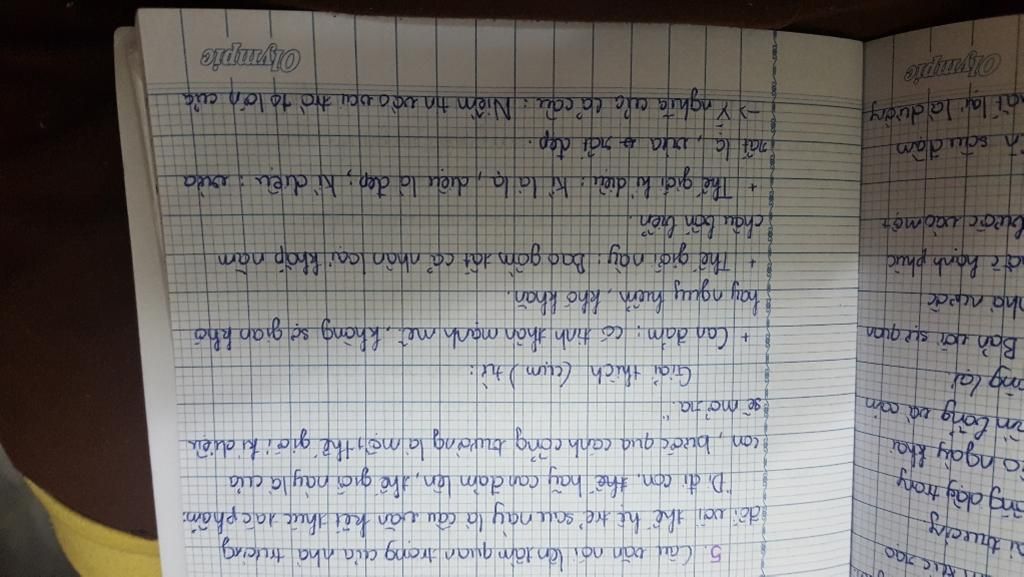 xúc tạo
trường
dậy trong
ngày khai
bổng và còn
lại
Bản với sự quan
nhà nước
hạnh phúc
bước vào một
sâu đậm
lại là đường
Olympic
5. Câu văn nói lên tầm quan trọng của nhà trường
đối với thế hệ trẻ sau này là câu văn kết thúc tác phẩm:
"Đi đi con, thế hãy can đảm lên, thế giới này là của
con, bước qua cánh cổng trường là một thế giới kì diệu
sẽ mở ra."
Giải thích (cụm) từ:
+ Can đảm: có tinh thần mạnh mẽ, không sợ gian khổ
hay nguy hiểm, khó khăn.
+ Thế giới này: Bao gồm tất cả nhân loại khắp năm
châu bốn biển.
+ Thế giới kì diệu: Kì là lạ, diệu là đẹp; kì diệu: vừa
rất lạ, vừa rất đẹp.
→ Ý nghĩa của cả câu: Niềm tin vào vai trò to lớn của
Olympic